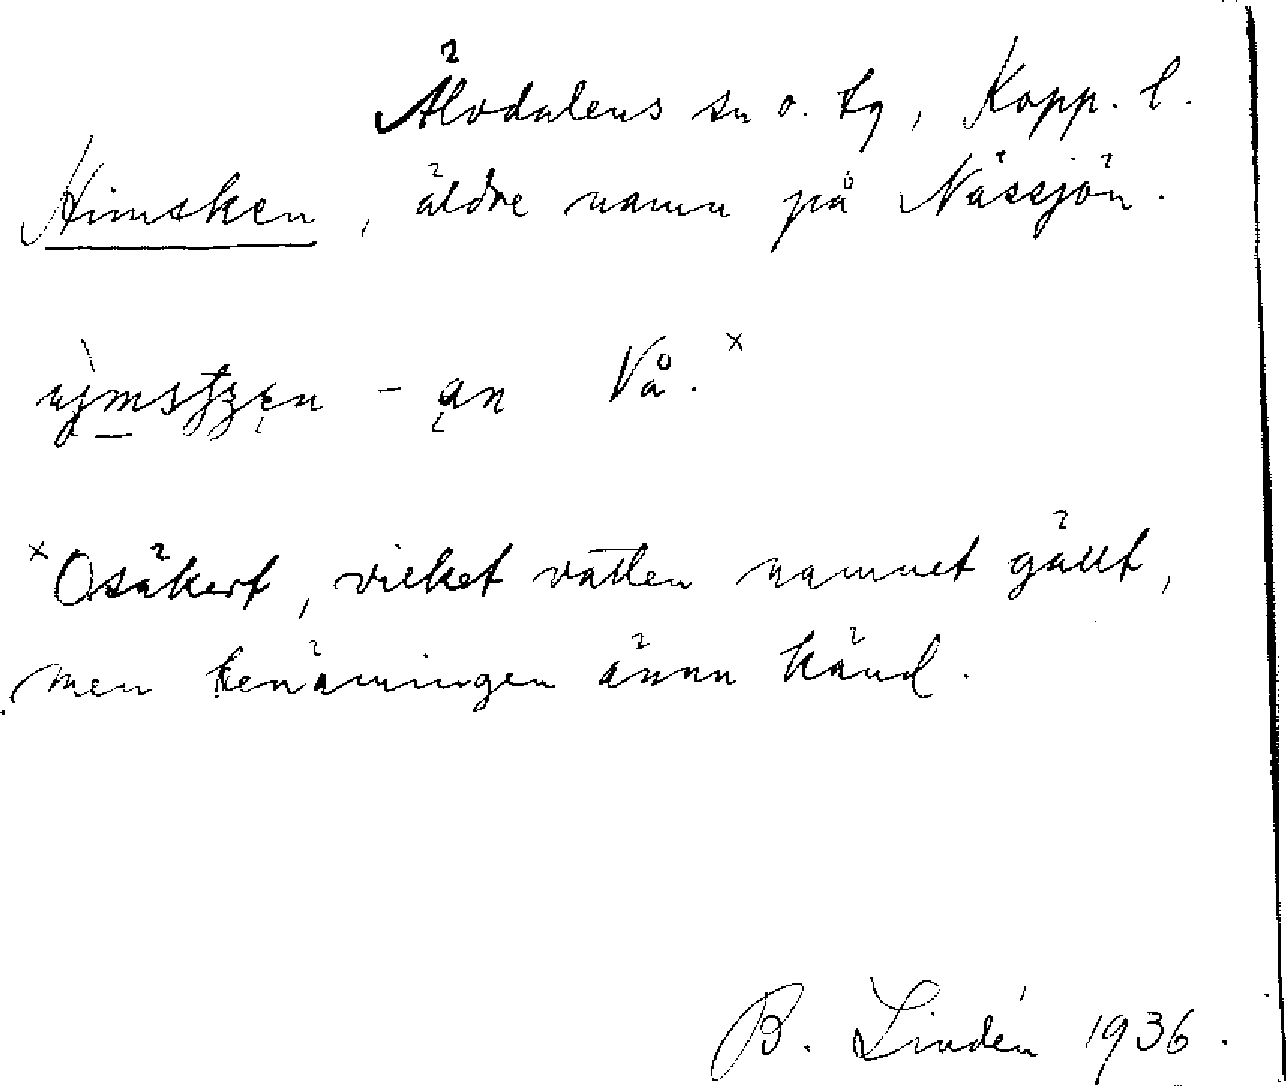 Älvdalens sn o. tg, Kopp. l.
Himsken, äldre namn på Nässjön.
- an Vå. x
x Osäkert, vilket vatten namnet gällt,
men benämningen ännu känd.
B. Lindén 1936.